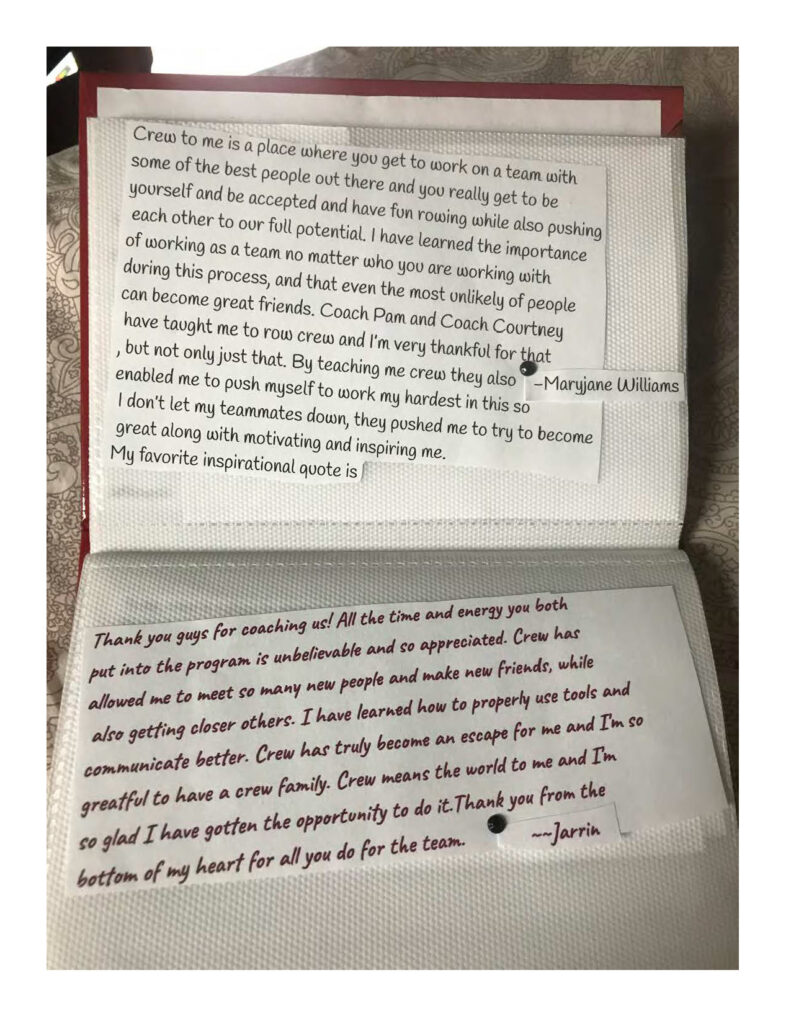 Crew to me is a place where you get to work on a team with
some of the best people out there and you really get to be
yourself and be accepted and have fun rowing while also pushing
each other to our full potential. I have learned the importance
of working as a team no matter who you are working with
during this process, and that even the most unlikely of people
can become great friends. Coach Pam and Coach Courtney
have taught me to row crew and I'm very thankful for that
, but not only just that. By teaching me crew they also
–Maryjane Williams
enabled me to push myself to work my hardest in this so
I don't let my teammates down, they pushed me to try to become
great along with motivating and inspiring me.
My favorite inspirational quote is
Thank you guys for coaching us! All the time and energy you both
put into the program is unbelievable and so appreciated. Crew has
allowed me to meet so many new people and make new friends, while
also getting closer others. I have learned how to properly use tools and
communicate better. Crew has truly become an escape for me and I'm so
greatful to have a crew family. Crew means the world to me and I'm
so glad I have gotten the opportunity to do it.Thank you from the
bottom of my heart for all you do for the team.
~~Jarrin